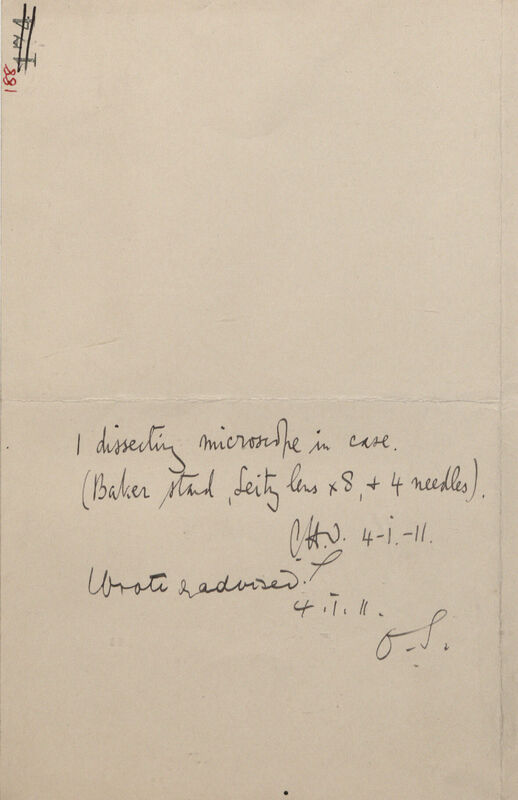 188
1 dissecting microscope in case.
(Baker stand, Leitz lens x8, & 4 needles).
4-i.-11.
Wrote & advised.
4.I.11.
O.S.